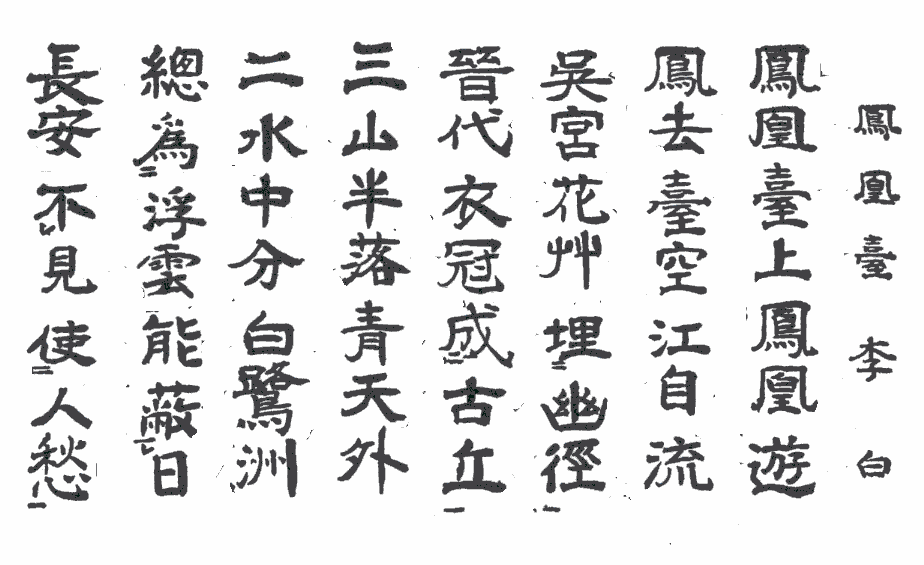 鳳凰臺 李白
鳳凰臺上鳳凰遊
鳳去臺空江自流
吳宮花艸埋幽徑
晉代衣冠成古丘
三山半落青天外
二水中分白鷺洲
總爲浮雲能蔽日
長安不見使人愁